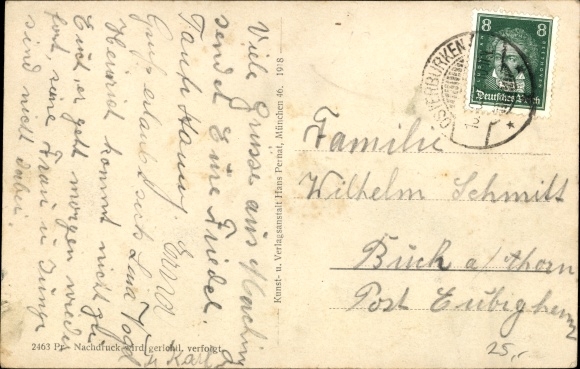 Viele Grüsse aus
sendet Eure Friedel.
Tante Hanny, Erna
Gruß erlaubt sich Lina Vogel
Heinrich kommt nicht zu
Euch, er geht morgen wieder
fort, seine Frau u Junge
sind nicht dabei.
u Karl
Kunst- u. Verlagsanstalt Hans Pernat, München 46. 1918
2463 Pr. Nachdruck wird gerichtl. verfolgt.
8 8
Deutsches Reich
OSTERBURKEN
Familie
Wilhelm Schmitt
Buch a/Ahorn
Post Eubigheim
25,-